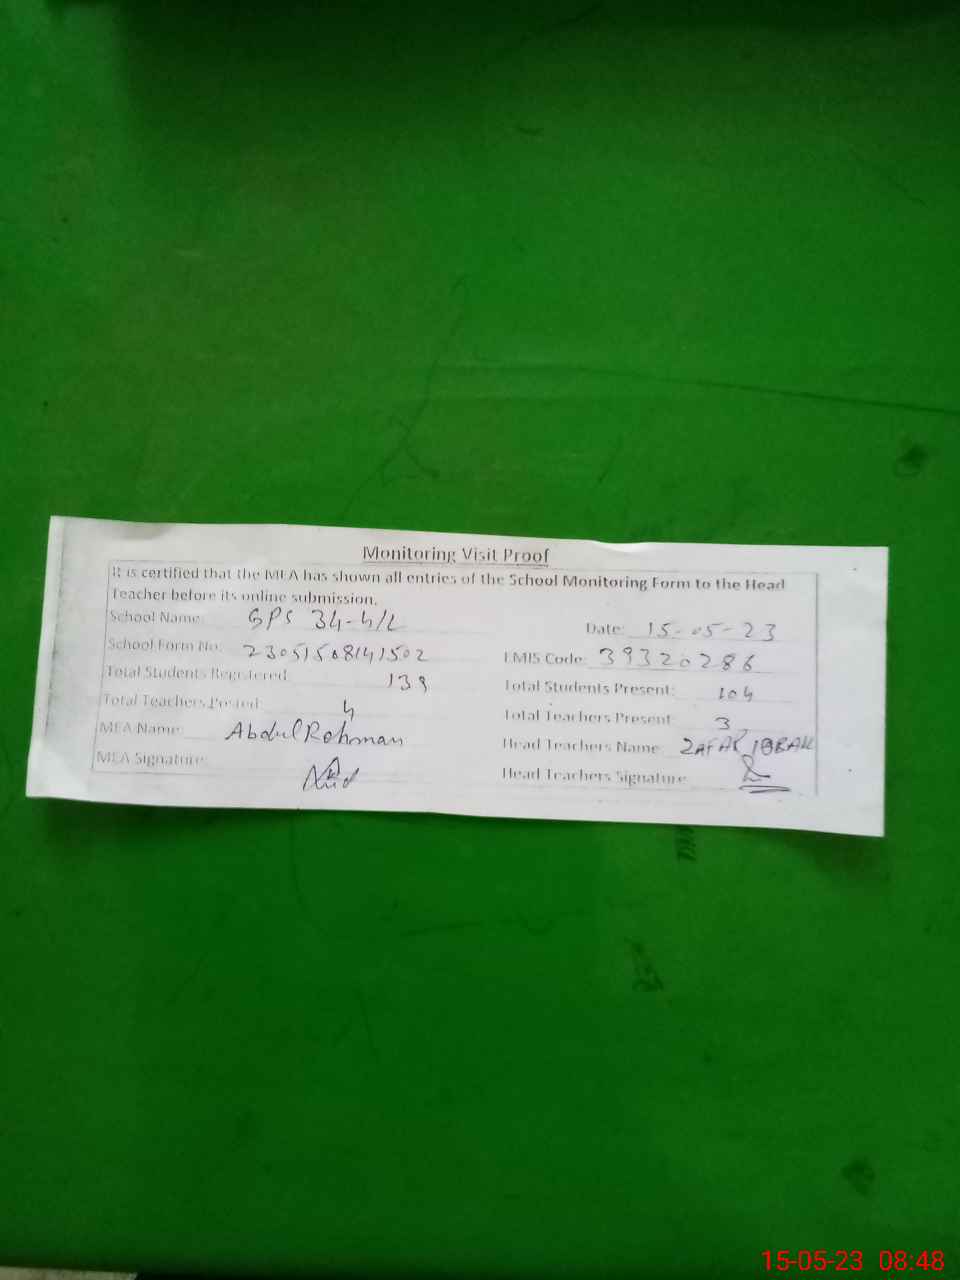 Monitoring Visit Proof
It is certified that the MEA has shown all entries of the School Monitoring Form to the Head
Teacher before its online submission.
School Name: GPS 34-4/L
Date: 15-05-23
School Form No: 23051508141502
EMIS Code: 39320286
Total Students Registered: 139
Total Students Present: 104
Total Teachers Posted: 4
Total Teachers Present: 3
MEA Name: Abdul Rehman
Head Teachers Name: ZAFAR
MEA Signature:
Head Teachers Signature:
15-05-23 08:48